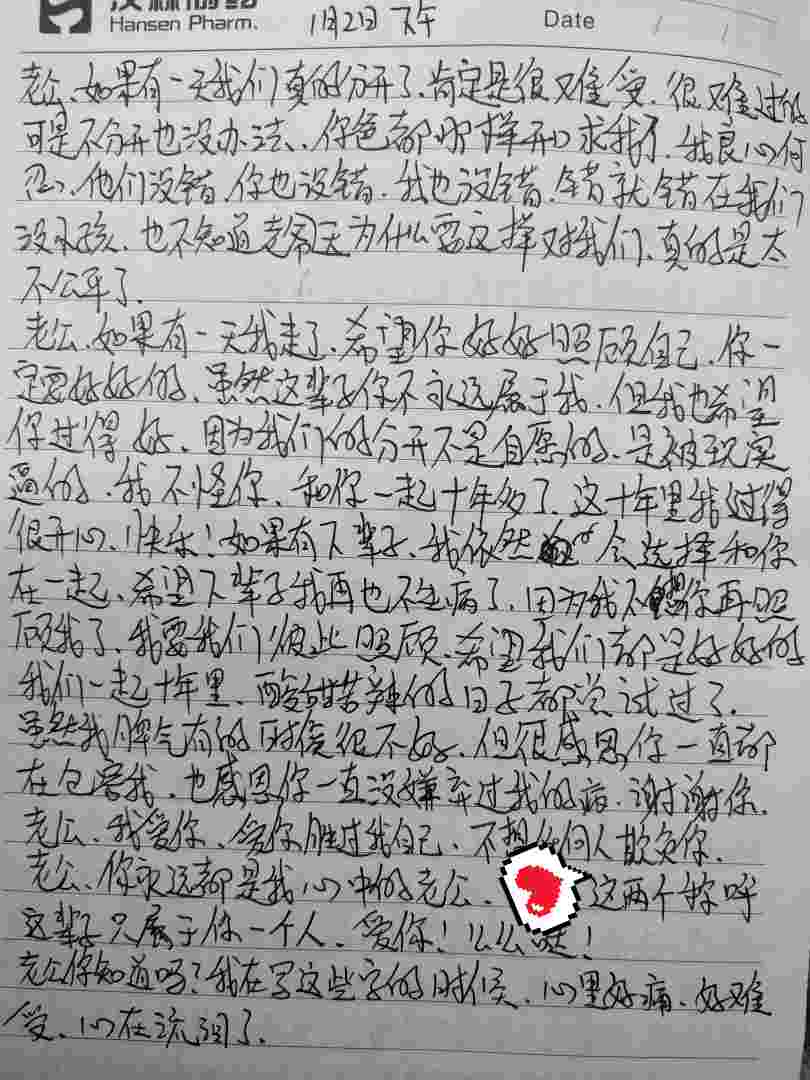 Hansen Pharm.
Date
1月2日 下午
老公、如果有一天我们真的分开了、肯定是很难受、很难过的
可是不分开也没办法、你爸都那样开口求我了、我良心何
忍、他们没错、你也没错、我也没错、错就错在我们
没小孩、也不知道老天为什么要这样对我们、真的是太
不公平了.
老公、如果有一天我走了、希望你好好照顾自己、你一
定要好好的、虽然这辈子你不永远属于我、但我也希望
你过得好、因为我们的分开不是自愿的、是被现实
逼的、我不怪你、和你一起十年多了、这十年里我过得
很开心、快乐！如果有下辈子、我依然会选择和你
在一起、希望下辈子我再也不生病了、因为我不想你再照
顾我了、我要我们彼此照顾、希望我们都是好好的
我们一起十年里、酸甜苦辣的日子都尝试过了.
虽然我脾气有的时候很不好、但很感恩你一直都
在包容我、也感恩你一直没嫌弃过我的病、谢谢你.
老公、我爱你、爱你胜过我自己、不想任何人欺负你.
老公、你永远都是我心中的老公、这两个称呼
这辈子只属于你一个人、爱你！么么哒！
老公你知道吗？我在写这些字的时候、心里好痛、好难
受、心在流泪了.